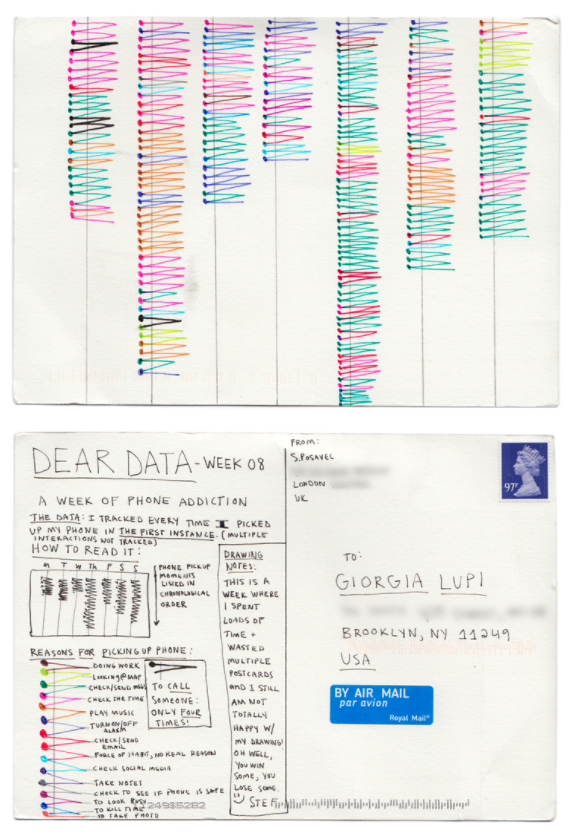 DEAR DATA - WEEK 08
A WEEK OF PHONE ADDICTION
THE DATA: I TRACKED EVERY TIME I PICKED
UP MY PHONE IN THE FIRST INSTANCE. (MULTIPLE
INTERACTIONS NOT TRACKED)
HOW TO READ IT:
M T W Th F S S
PHONE PICKUP
MOMENTS
LISTED IN
CHRONOLOGICAL
ORDER
REASONS FOR PICKING UP PHONE:
DOING WORK
LOOKING @ MAP
CHECK/SEND MSGS
CHECK THE TIME
PLAY MUSIC
TURN ON/OFF
ALARM
CHECK/SEND
EMAIL
FORCE OF HABIT, NO REAL REASON
CHECK SOCIAL MEDIA
TAKE NOTES
CHECK TO SEE IF PHONE IS SAFE
TO LOOK BUSY
TO KILL TIME
TO TAKE PHOTO
TO CALL
SOMEONE:
ONLY FOUR
TIMES!
DRAWING
NOTES:
THIS IS A
WEEK WHERE
I SPENT
LOADS OF
TIME +
WASTED
MULTIPLE
POSTCARDS
AND I STILL
AM NOT
TOTALLY
HAPPY W/
MY DRAWING!
OH WELL,
YOU WIN
SOME, YOU
LOSE SOME.
STEF
FROM:
S.POSAVEC
LONDON
UK
97P
TO:
GIORGIA LUPI
BROOKLYN, NY 11249
USA
BY AIR MAIL
par avion
Royal Mail®